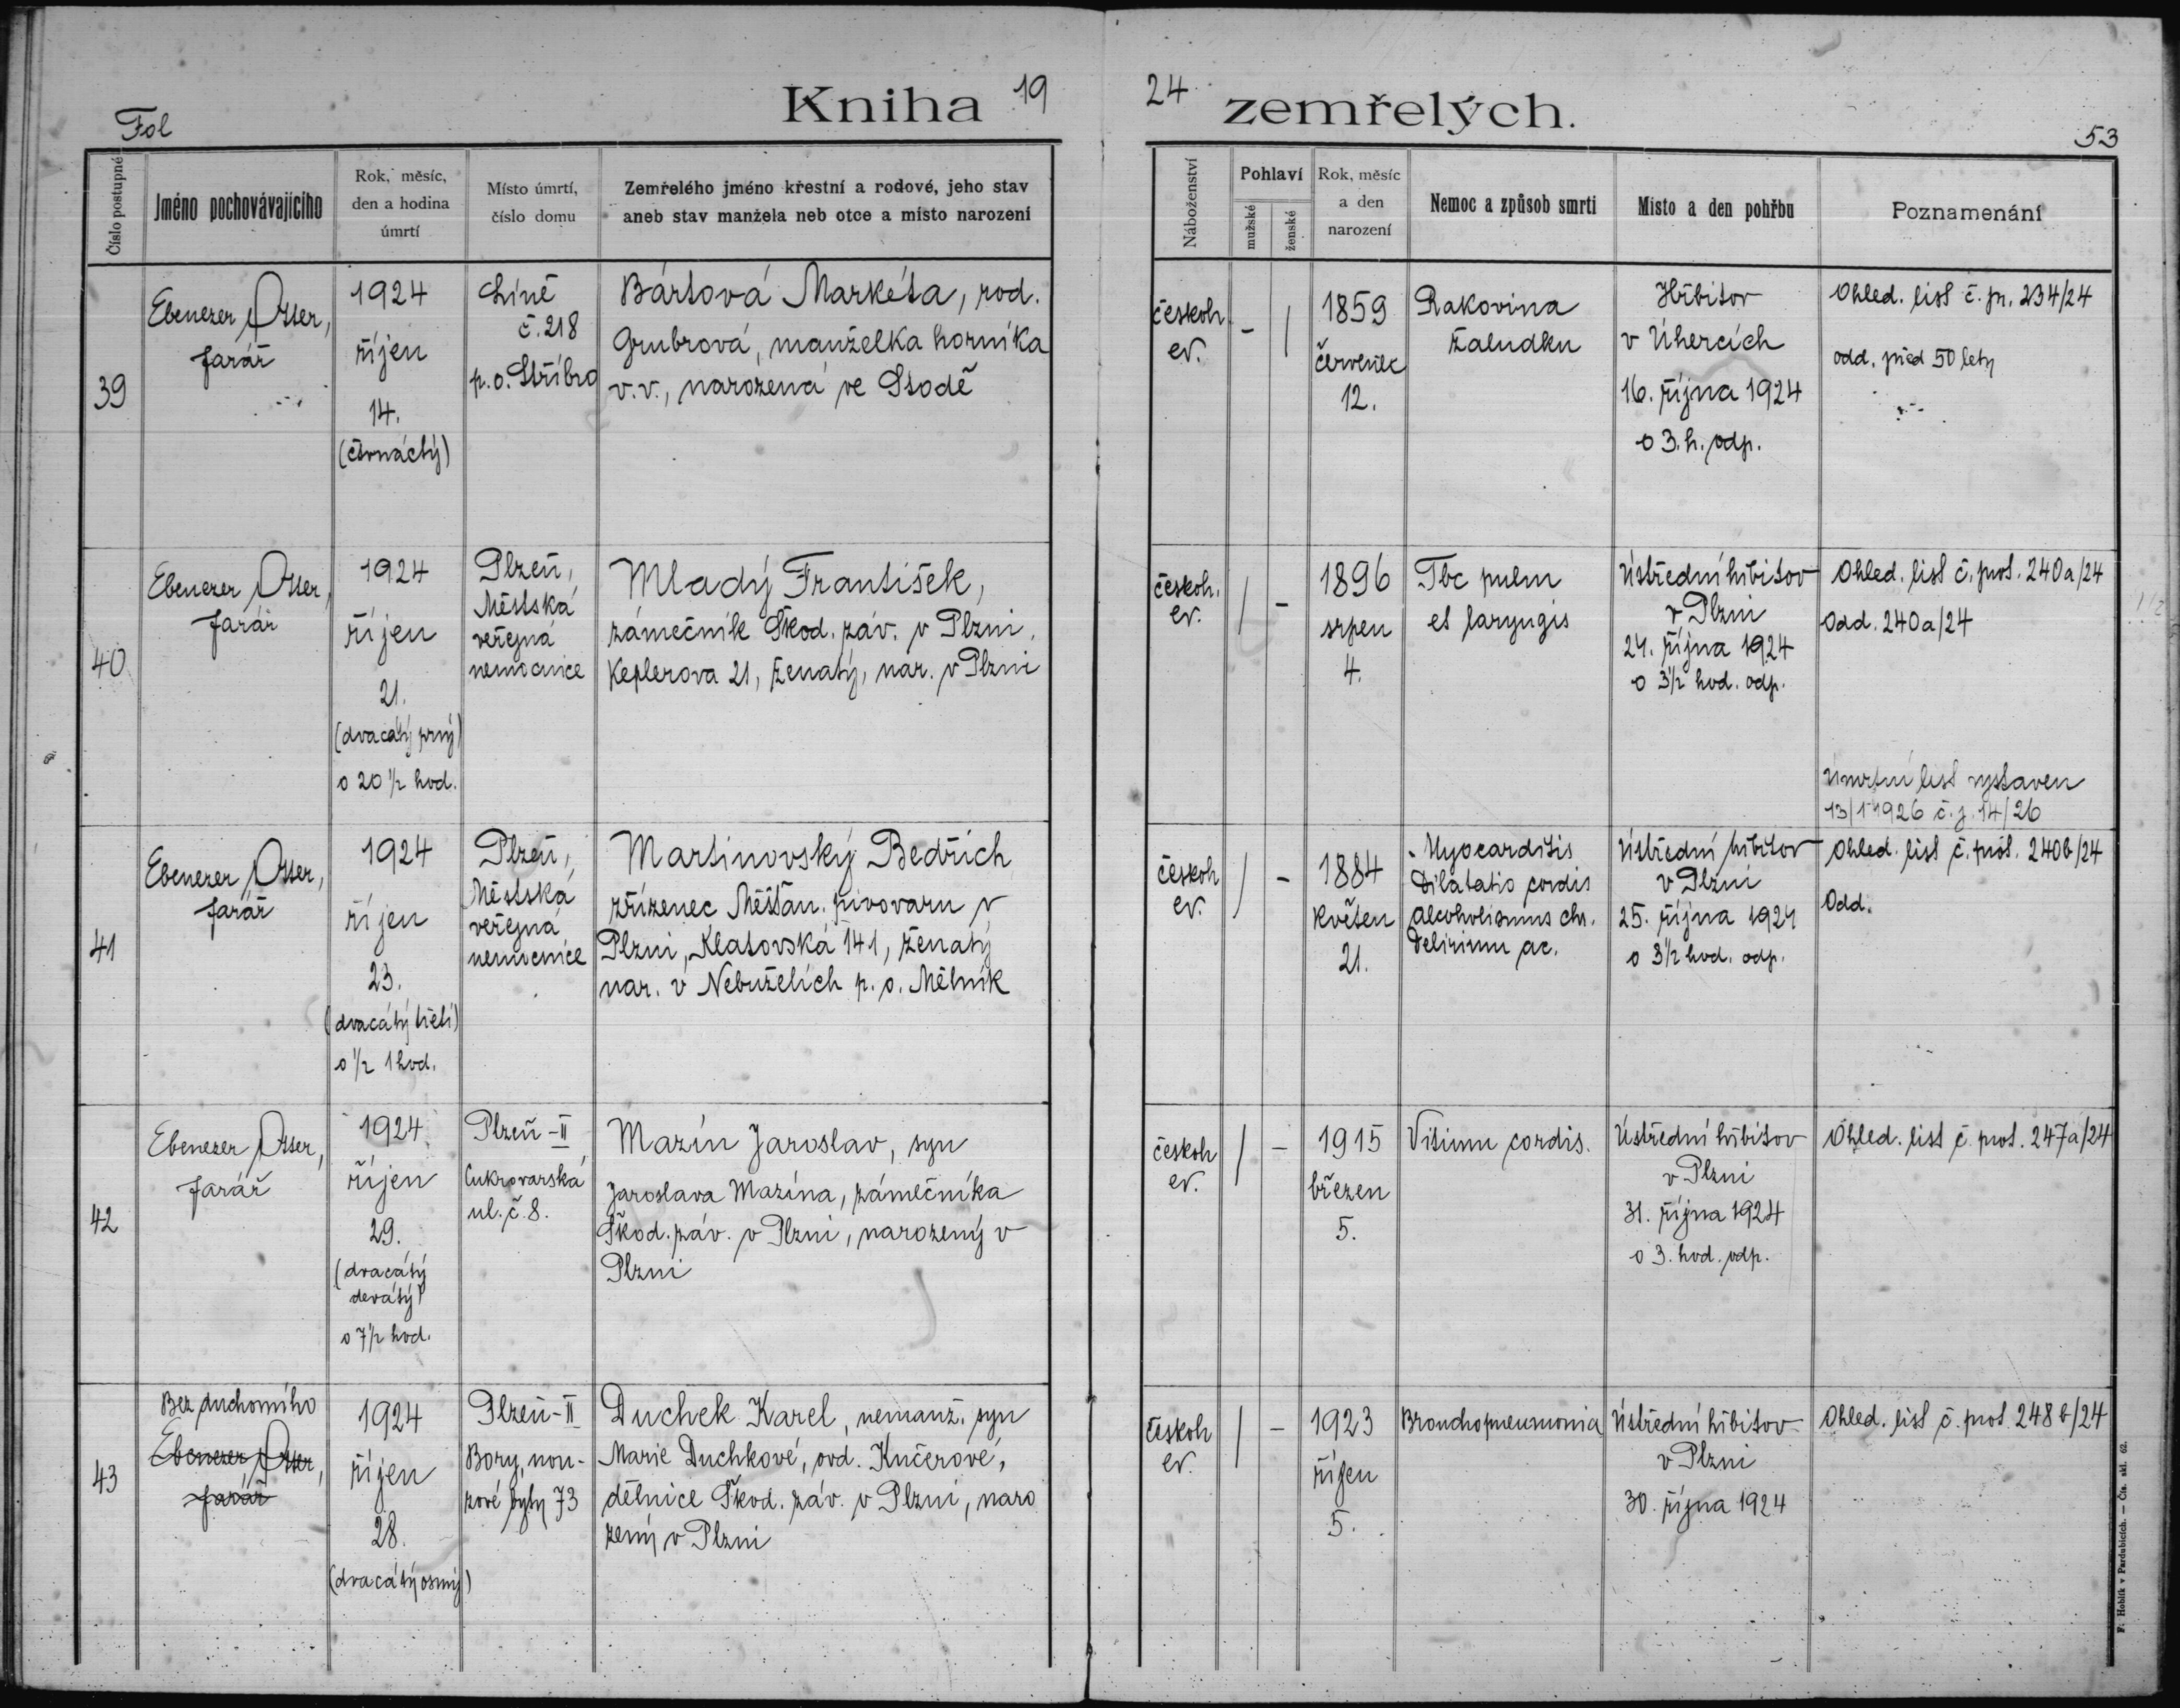 Fol
Kniha 19
24 zemřelých.
53
Číslo postupné
Jméno pochovávajícího
Rok, měsíc,
den a hodina
úmrtí
Místo úmrtí,
číslo domu
Zemřelého jméno křestní a rodové, jeho stav
aneb stav manžela neb otce a místo narození
Náboženství
Pohlaví
mužské
ženské
Rok, měsíc
a den
narození
Nemoc a způsob smrti
Místo a den pohřbu
Poznamenání
39
Ebenezer Otter,
farář
1924
říjen
14.
(čtrnáctý)
Líně
č. 218
p. o. Stříbro
Bártová Markéta, rod.
Grubrová, manželka horníka
v. v., narozená ve Stodě
českob
ev.
-
/
1859
červenec
12.
Rakovina
žaludku
Hřbitov
v Úhercích
16. října 1924
o 3. h. odp.
Ohled. list č. pr. 234/24
odd. před 50 lety
40
Ebenezer Otter,
farář
1924
říjen
21.
(dvacátý prvý)
o 20 1/2 hod.
Plzeň,
Městská
veřejná
nemocnice
Mladý František,
zámečník Škod. záv. v Plzni,
Keplerova 21, ženatý, nar. v Plzni
českob.
ev.
/
-
1896
srpen
4.
Tbc pulm
et laryngis
Ústřední hřbitov
v Plzni
24. října 1924
o 3 1/2 hod. odp.
Ohled. list č. prot. 240a/24
Odd. 240a/24
Úmrtní list vystaven
13/1 1926 č. j. 14/26
41
Ebenezer Otter,
farář
1924
říjen
23.
(dvacátý třetí)
o 1/2 1 hod.
Plzeň,
Městská
veřejná
nemocnice
Martinovský Bedřich
zřízenec Měšťan. pivovaru v
Plzni, Klatovská 141, ženatý
nar. v Nebuželích p. o. Mělník
českob
ev.
/
-
1884
květen
21.
Myocarditis
Dilatatio cordis
alcoholismus chr.
Delirium ac.
Ústřední hřbitov
v Plzni
25. října 1924
o 3 1/2 hod. odp.
Ohled. list č. prot. 240b/24
Odd.
42
Ebenezer Otter,
farář
1924
říjen
29.
(dvacátý
devátý)
o 7 1/2 hod.
Plzeň-II
Cukrovarská
ul. č. 8.
Mazín Jaroslav, syn
Jaroslava Mazína, zámečníka
Škod. záv. v Plzni, narozený v
Plzni
českob
ev.
/
-
1915
březen
5.
Vitium cordis.
Ústřední hřbitov
v Plzni
31. října 1924
o 3. hod. odp.
Ohled. list č. prot. 247a/24
43
Bez duchovního
Ebenezer Otter,
farář
1924
říjen
28.
(dvacátý osmý)
Plzeň-II
Bory, nou-
zové byty 73
Duchek Karel, nemanž. syn
Marie Duchkové, ovd. Kučerové,
dělnice Škod. záv. v Plzni, naro
zený v Plzni
českob
ev.
/
-
1923
říjen
5.
Bronchopneumonia
Ústřední hřbitov
v Plzni
30. října 1924
Ohled. list č. prot. 248b/24
F. Hoblík v Pardubicích. — Čís. skl. 62.